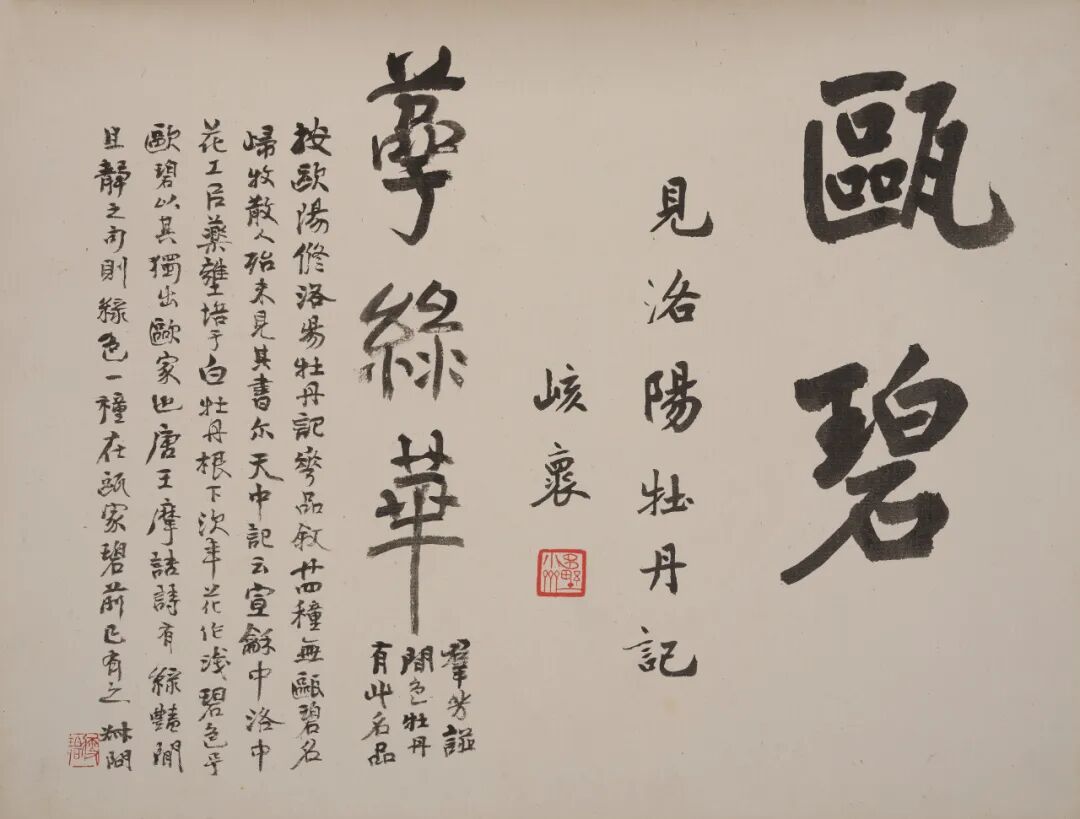 甌碧
見洛陽牡丹記
峐褱
萼綠華
羣芳譜
間色牡丹
有此名品
按歐陽修洛陽牡丹記品敘廿四種無甌碧名
歸牧散人殆未見其書尔天中記云宣龢中洛中
花工㠯藥壅培于白牡丹根下次年花作浅碧色乎
歐碧以其獨出歐家也唐王摩詰詩有綠豔閒
且靜之句則綠色一種在甌家碧前已有之 尗問